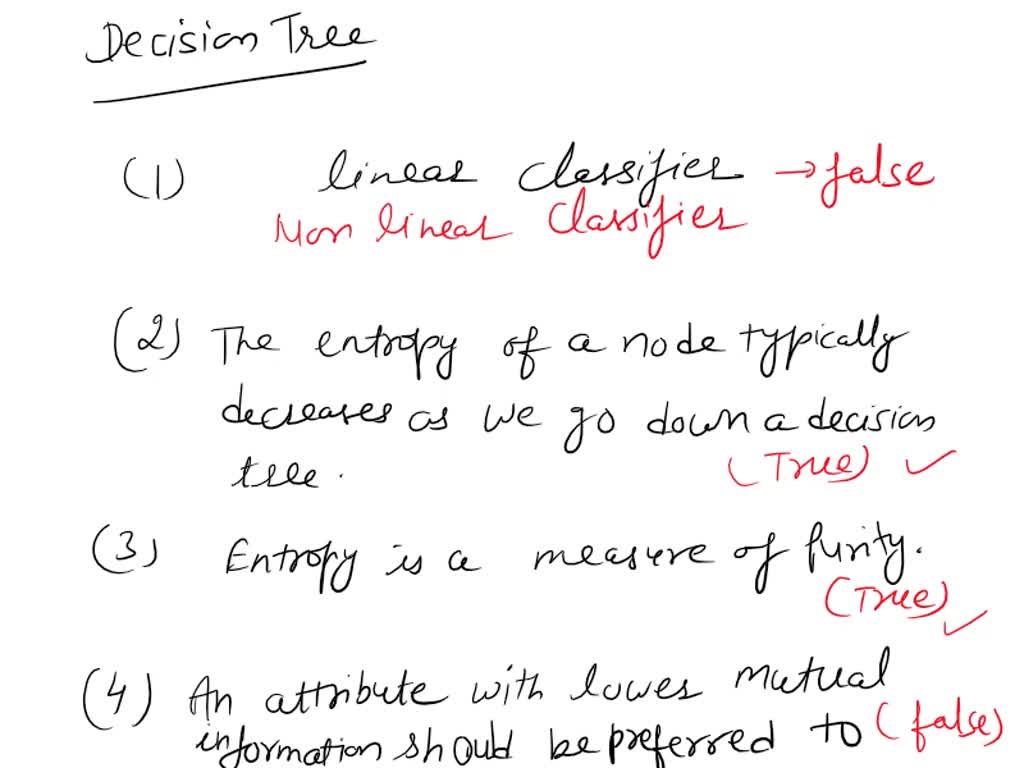 Decision Tree
(1) linear classifier → false
Non linear Classifier
(2) The entropy of a node typically
decreases as we go down a decision
tree.
(True) ✓
(3) Entropy is a measure of purity.
(True) ✓
(4) An attribute with lower mutual
information should be preferred to (false)